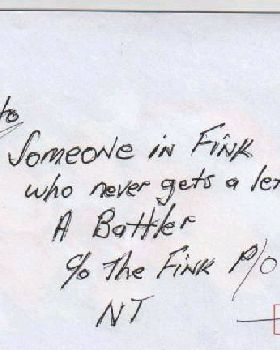 to
Someone in Fink
who never gets a
A Battler
c/o The Fink P/O
NT